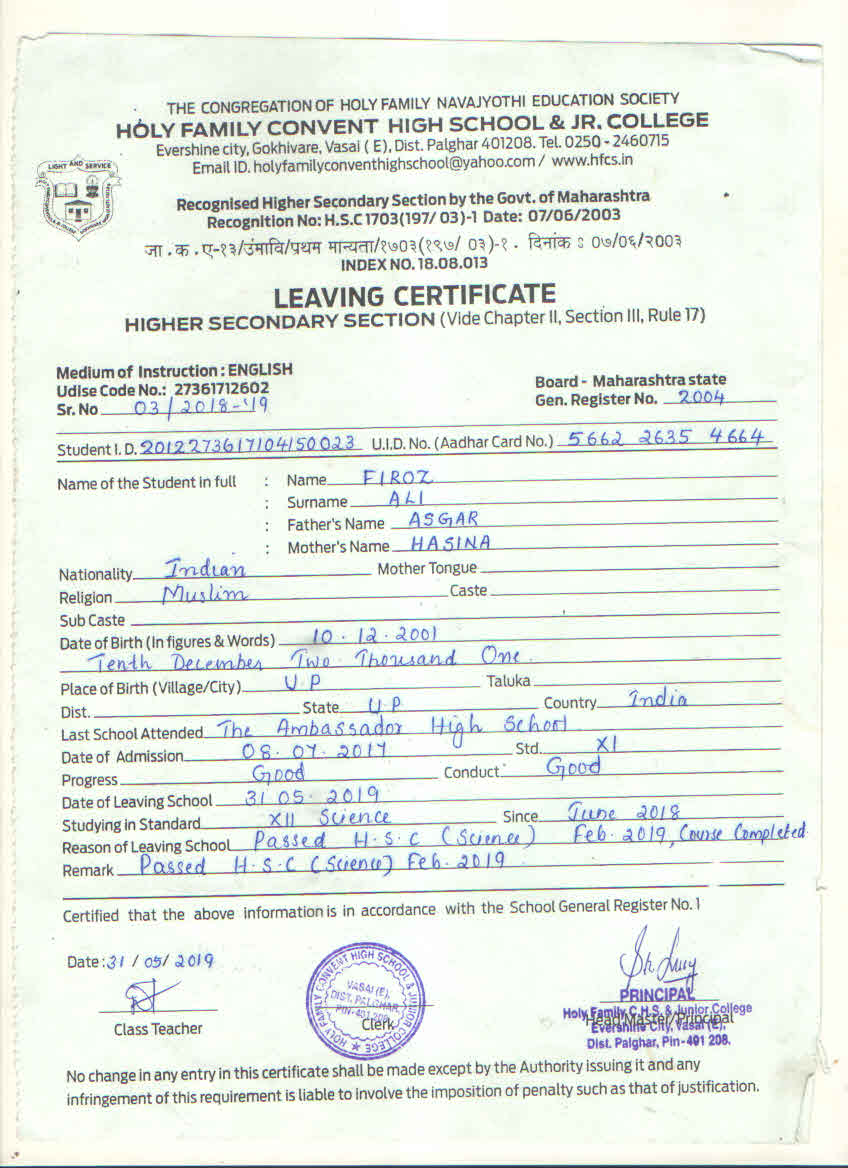 THE CONGREGATION OF HOLY FAMILY NAVAJYOTHI EDUCATION SOCIETY
HOLY FAMILY CONVENT HIGH SCHOOL & JR. COLLEGE
Evershine city, Gokhivare, Vasai ( E), Dist. Palghar 401208. Tel. 0250 - 2460715
Email ID. holyfamilyconventhighschool@yahoo.com / www.hfcs.in
LIGHT AND SERVICE
Recognised Higher Secondary Section by the Govt. of Maharashtra
Recognition No: H.S.C 1703(197/ 03)-1 Date: 07/06/2003
जा . क . ए-१३/उंमावि/प्रथम मान्यता/१७०३(१९७/ ०३)-१ . दिनांक : ०७/०६/२००३
INDEX NO. 18.08.013
LEAVING CERTIFICATE
HIGHER SECONDARY SECTION (Vide Chapter II, Section III, Rule 17)
Medium of Instruction : ENGLISH
Udise Code No.: 27361712602 Board - Maharashtra state
Sr. No 03/2018-'19 Gen. Register No. 2004
Student I. D. 2012273617104150023 U.I.D. No. (Aadhar Card No.) 5662 2635 4664
Name of the Student in full : Name FIROZ
: Surname ALI
: Father's Name ASGAR
: Mother's Name HASINA
Nationality Indian Mother Tongue
Religion Muslim Caste
Sub Caste
Date of Birth (In figures & Words) 10.12.2001
Tenth December Two Thousand One.
Place of Birth (Village/City) U P Taluka
Dist. State U.P Country India
Last School Attended The Ambassador High School
Date of Admission 08.07.2017 Std. XI
Progress Good Conduct Good
Date of Leaving School 31 05 2019
Studying in Standard XII Science Since June 2018
Reason of Leaving School Passed H.S.C (Science) Feb. 2019, Course Completed
Remark Passed H.S.C (Science) Feb. 2019
Certified that the above information is in accordance with the School General Register No. 1
Date : 31 / 05/ 2019
Class Teacher
HOLY FAMILY CONVENT HIGH SCHOOL & JUNIOR COLLEGE
VASAI (E),
DIST. PALGHAR
PIN-401 208
Clerk
PRINCIPAL
Holy Family C.H.S. & Junior College
Head Master/Principal
Evershine City, Vasai (E),
Dist. Palghar, Pin-401 208.
No change in any entry in this certificate shall be made except by the Authority issuing it and any
infringement of this requirement is liable to involve the imposition of penalty such as that of justification.